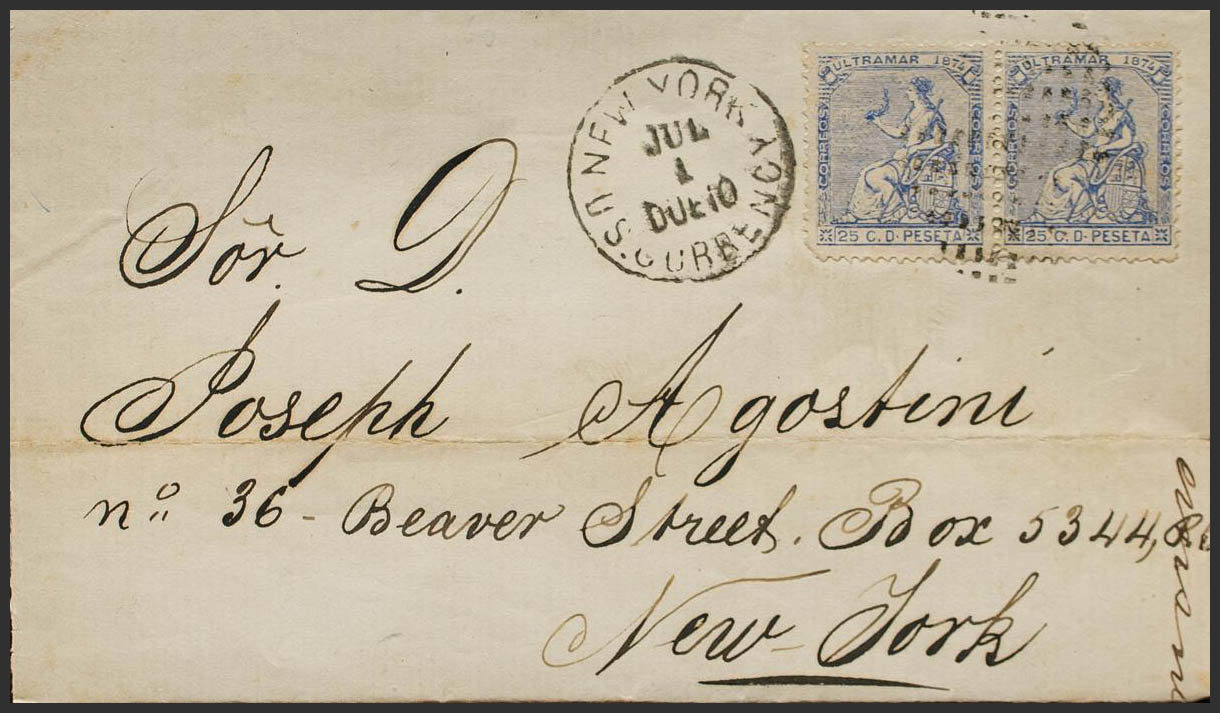 NEW YORK
JUL
1
DUE 10
U.S. CURRENCY
ULTRAMAR 1874
CORREOS
25 C. D. PESETA
ULTRAMAR 1874
CORREOS
25 C. D. PESETA
Sör. D.
Joseph Agostini
nº 36 - Beaver Street. Box 5344,
New-York